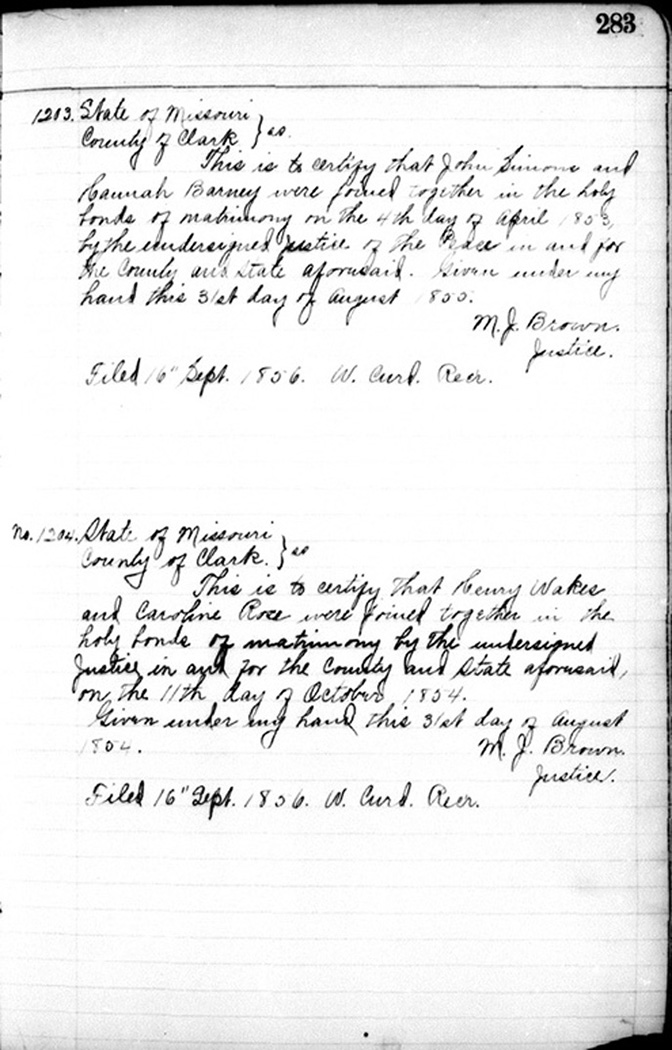 283
1203. State of Missouri
County of Clark } ss.
This is to certify that John Simons and
Hannah Barney were joined together in the holy
bonds of matrimony on the 4th day of April 1853,
by the undersigned justice of the Peace in and for
the County and State aforesaid. Given under my
hand this 31st day of August 1855.
M. J. Brown.
Justice.
Filed 16" Sept. 1856. W. Curd. Recr.
No. 1204. State of Missouri
County of Clark. } ss
This is to certify that Henry Wakes
and Caroline Rose were joined together in the
holy bonds of matrimony by the undersigned
Justice in and for the County and State aforesaid,
on the 11th day of October 1854.
Given under my hand this 31st day of August
1854.
M. J. Brown.
Justice.
Filed 16" Sept. 1856. W. Curd. Recr.